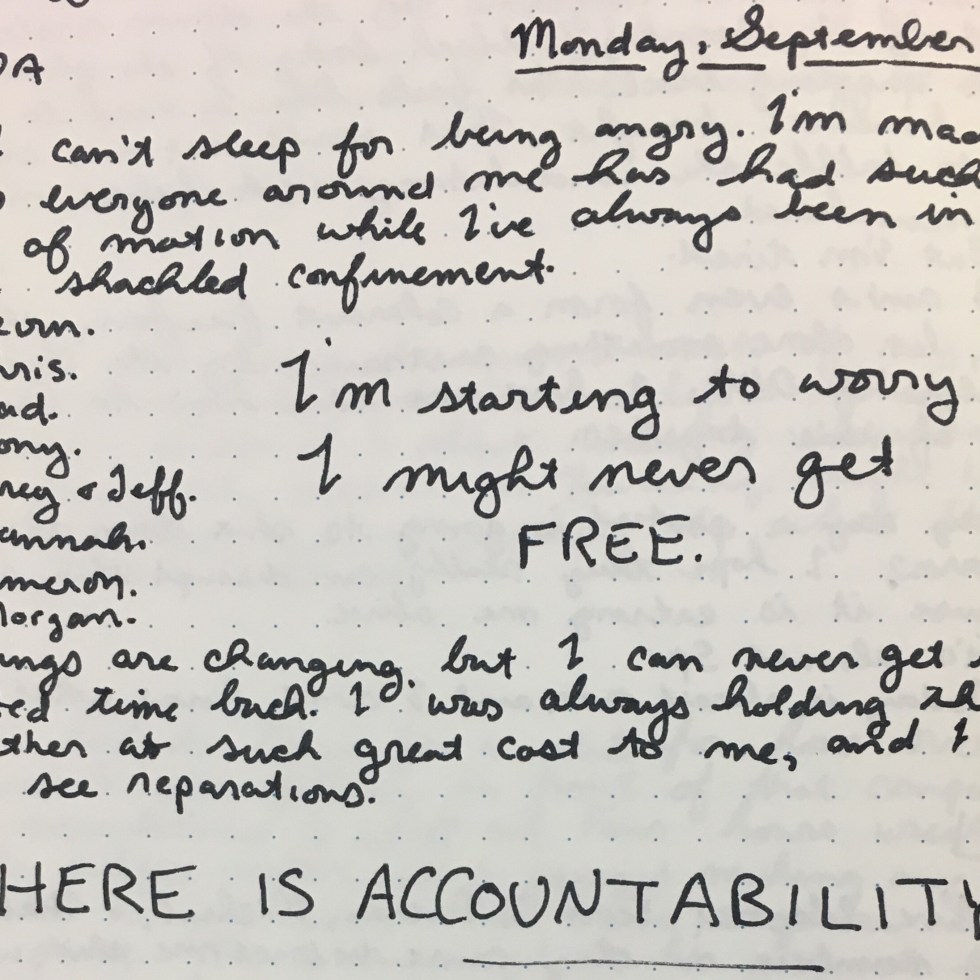 Monday, September
DA
can't sleep for being angry. I'm mad
everyone around me has had such
of motion while I've always been in
shackled confinement.
I'm starting to worry
I might never get
FREE.
& Jeff.
annah.
meron.
Morgan.
ings are changing, but I can never get
ed time back. I was always holding th
ther at such great cost to me, and I
see reparations.
HERE IS ACCOUNTABILITY